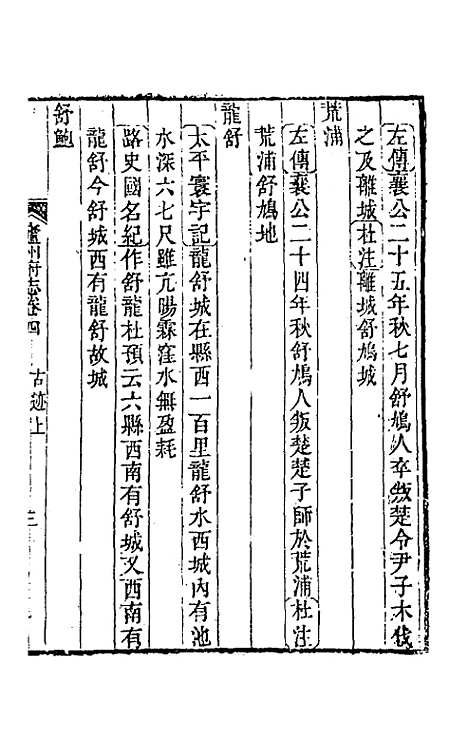 左傳襄公二十五年秋七月舒鳩人卒叛楚令尹子木伐
之及離城杜注離城舒鳩城
荒浦
左傳襄公二十四年秋舒鳩人叛楚楚子師於荒浦杜注
荒浦舒鳩地
龍舒
太平寰宇記龍舒城在縣西一百里龍舒水西城內有池
水深六七尺雖亢暘霖窪水無盈耗
路史國名紀作舒龍杜預云六縣西南有舒城又西南有
龍舒今舒城西有龍舒故城
舒鮑
廬州府志卷四 古迹上 三